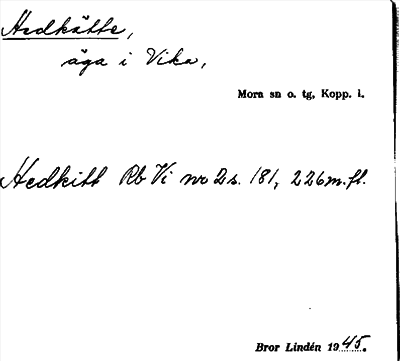 Hedkätte,
äga i Vika,
Mora sn o. tg, Kopp. l.
Hedkitt Rb Vi nr 2 s. 181, 226 m.fl.
Bror Lindén 1945.